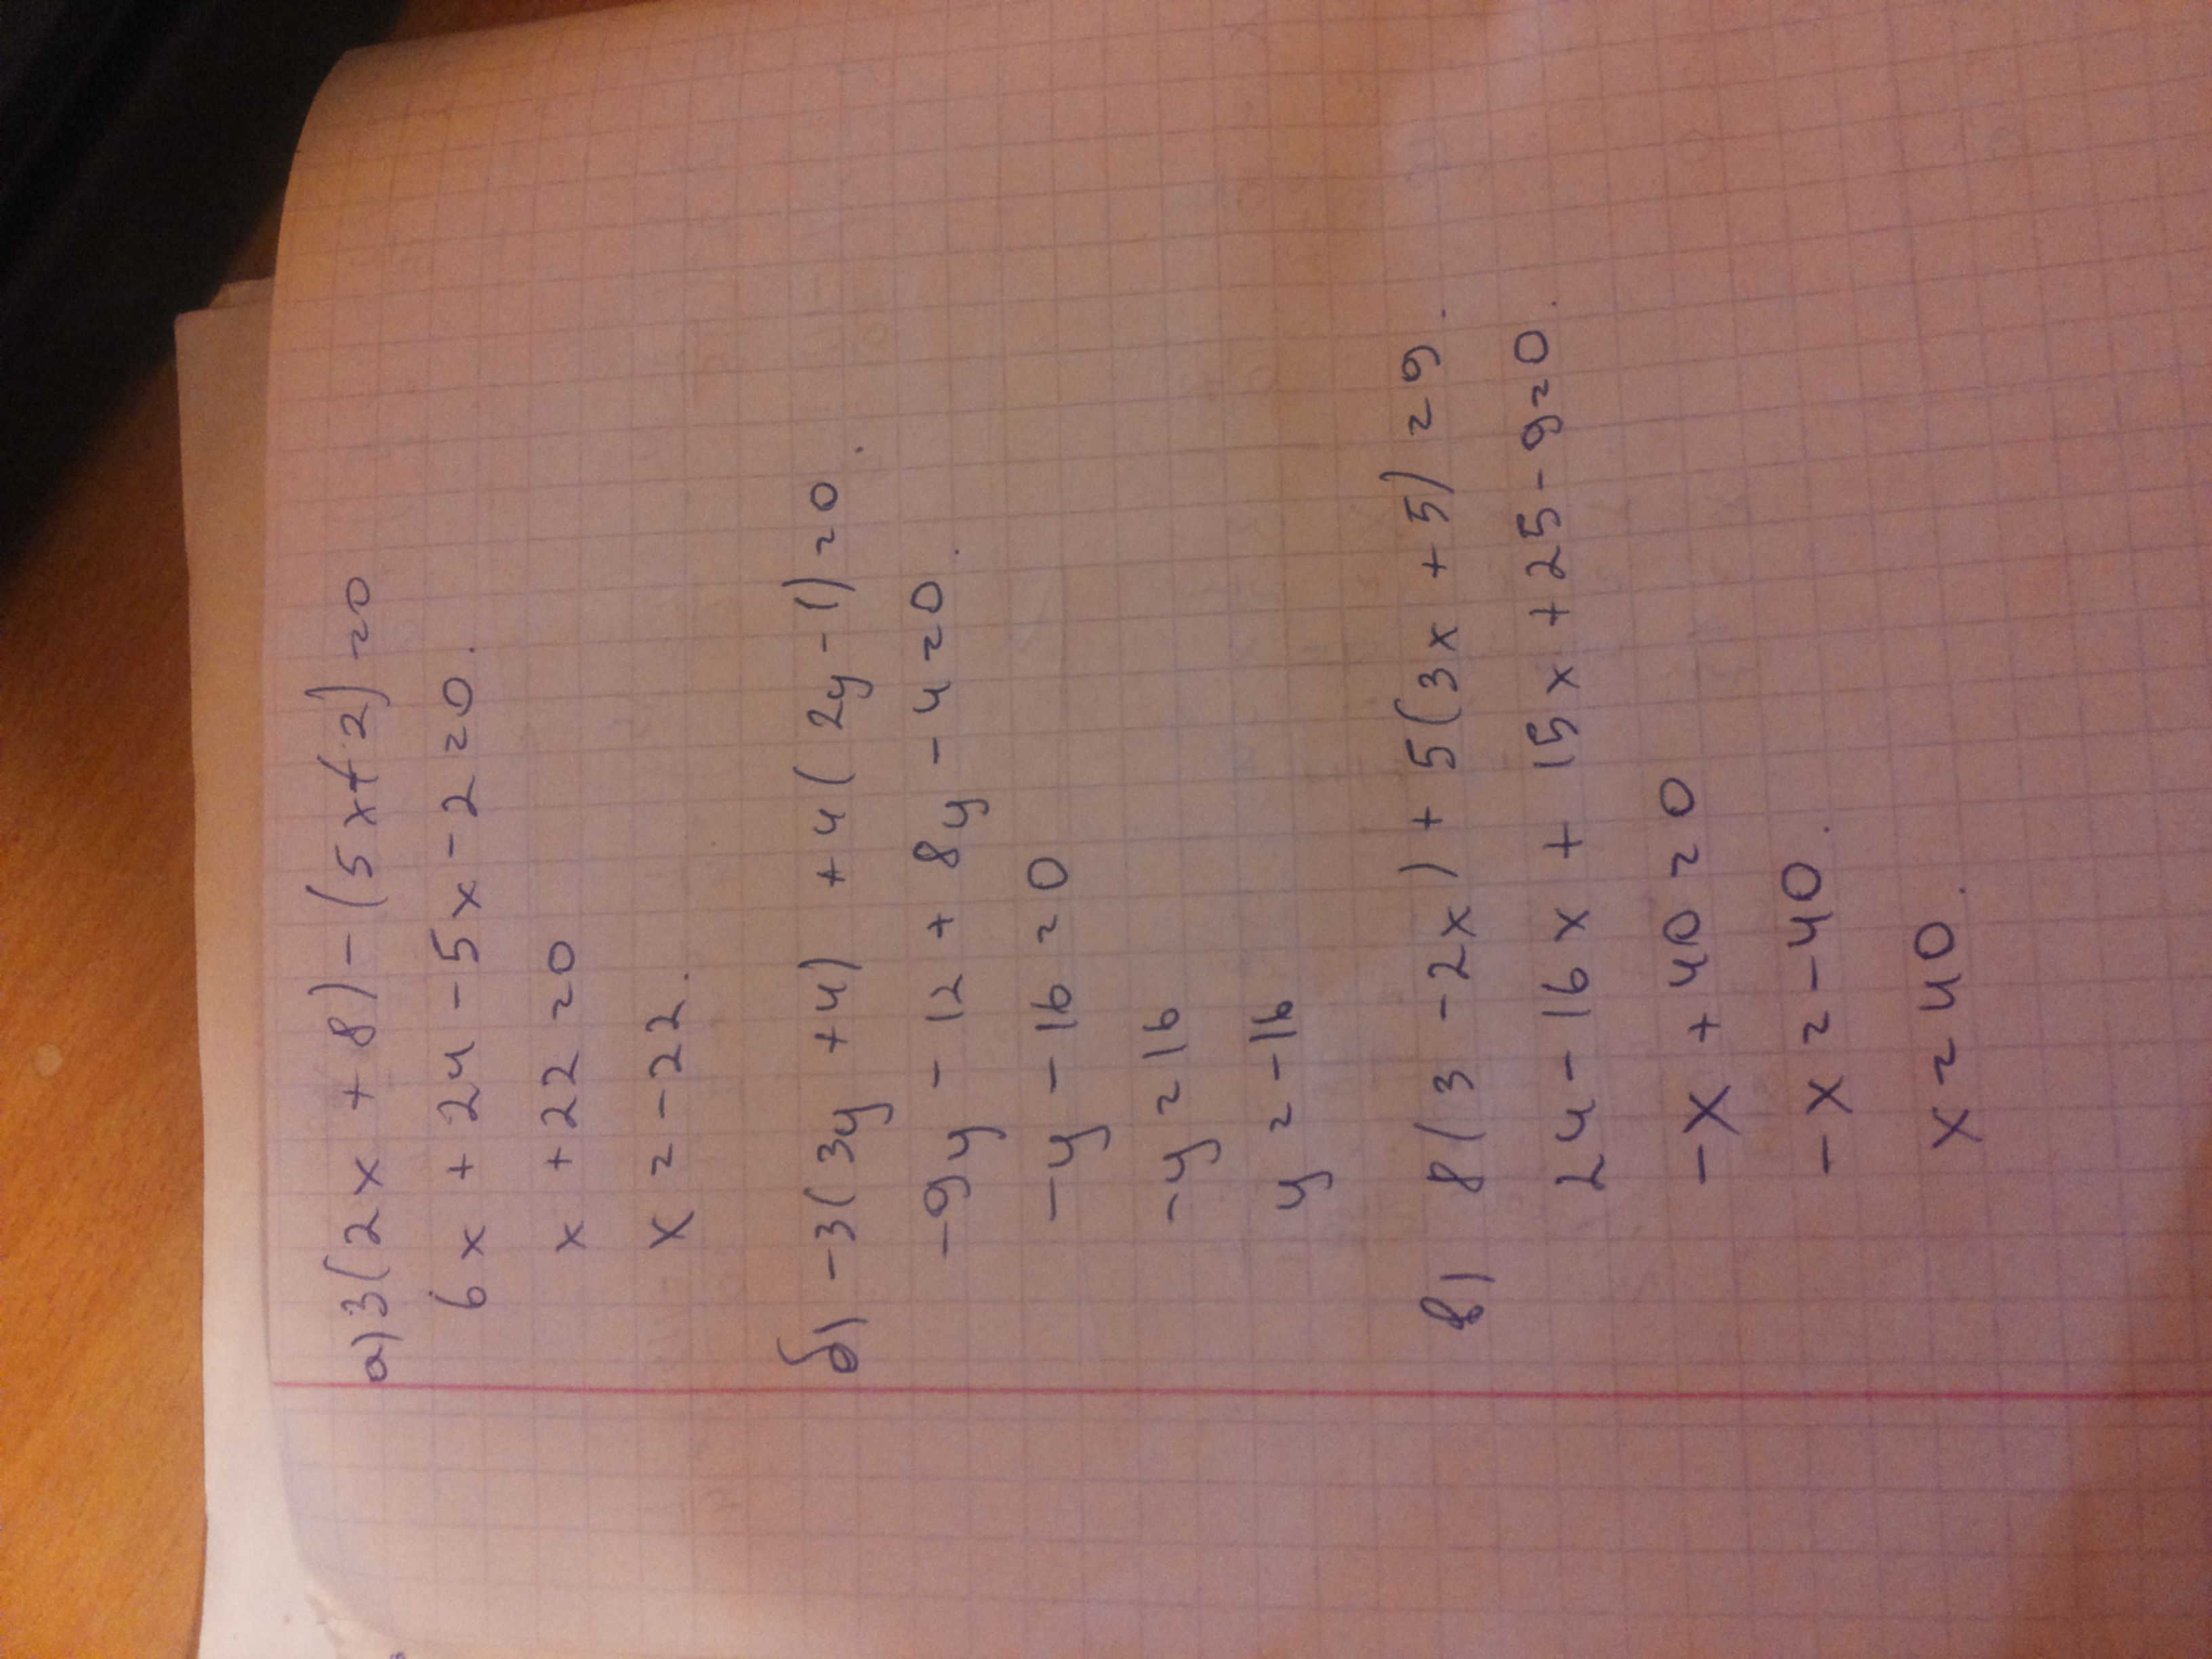 а) 3(2x + 8) - (5x + 2) = 0
6x + 24 - 5x - 2 = 0.
x + 22 = 0
x = -22.
б) -3(3y + 4) + 4(2y - 1) = 0.
-9y - 12 + 8y - 4 = 0.
-y - 16 = 0
-y = 16
y = -16
в) 8(3 - 2x) + 5(3x + 5) = 9.
24 - 16x + 15x + 25 - 9 = 0.
-x + 40 = 0
-x = -40.
x = 40.